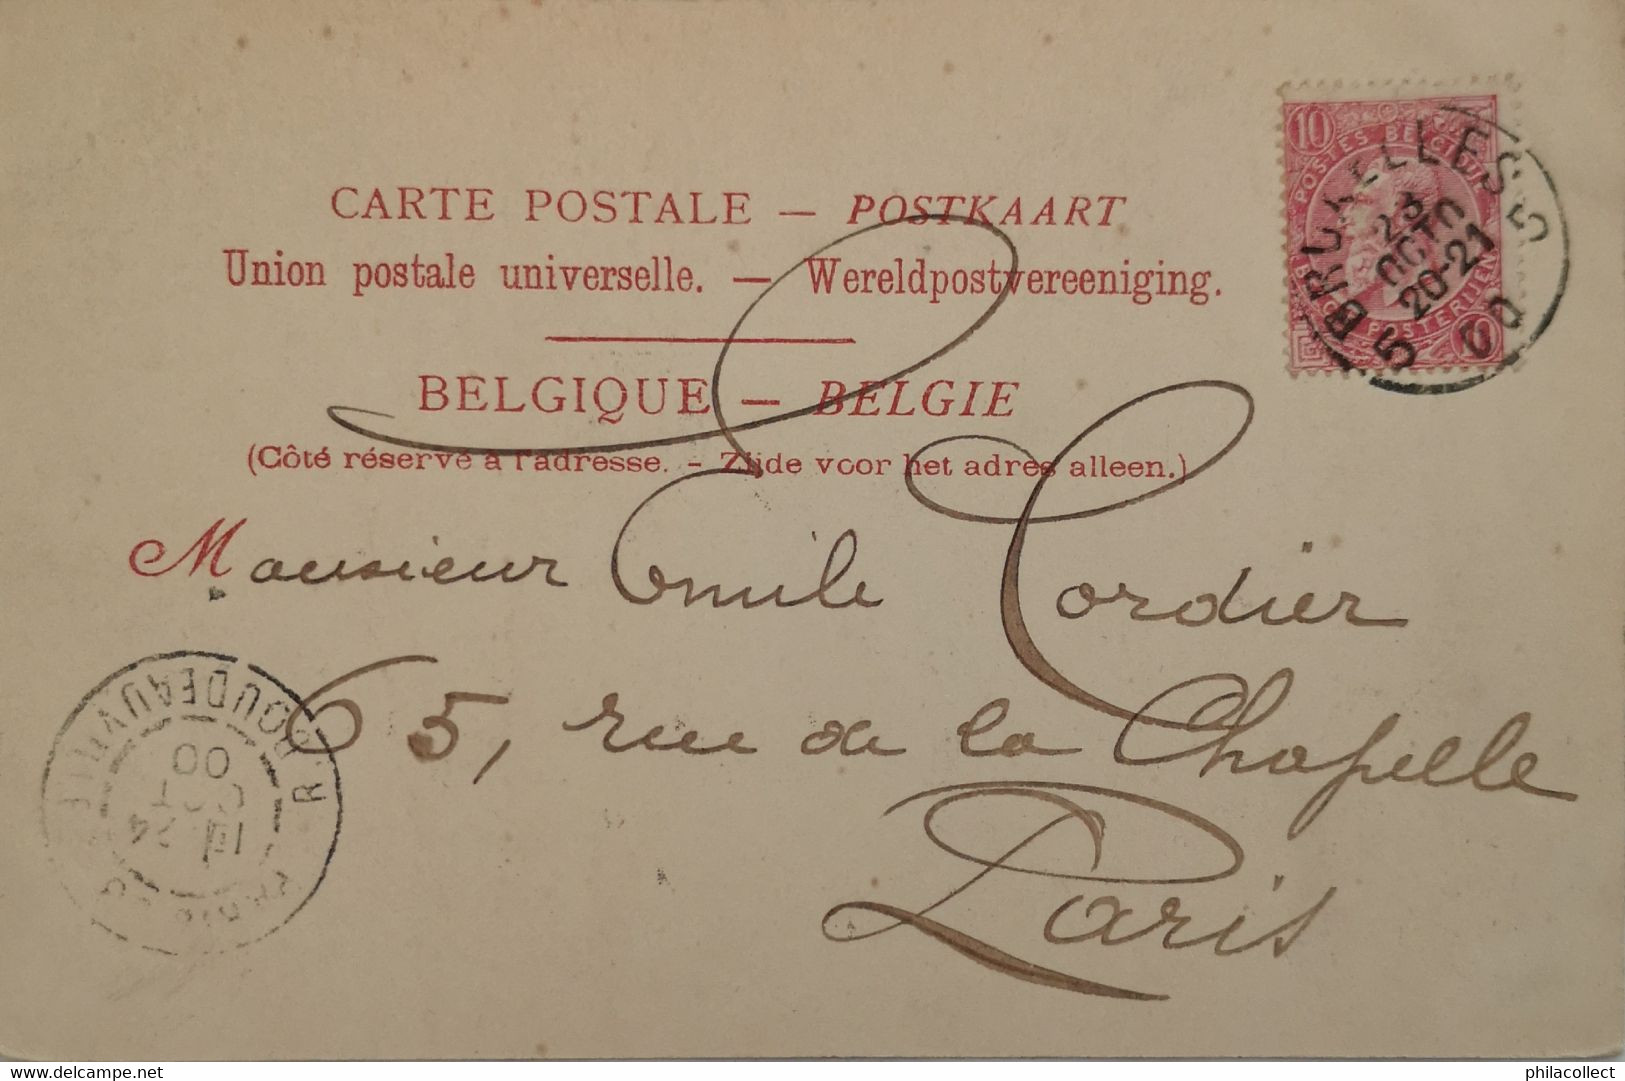 CARTE POSTALE — POSTKAART
Union postale universelle. — Wereldpostvereeniging.
BELGIQUE — BELGIE
(Côté réservé à l'adresse. - Zijde voor het adres alleen.)
10 10
POSTES BELGIQUE
BRUXELLES 5
23
OCTO
20-21
5 00
Monsieur Emile Cordier
65, rue de la Chapelle
Paris
R. BOUDEAUVILLE
00
OCT
24
delcampe.net
philacollect